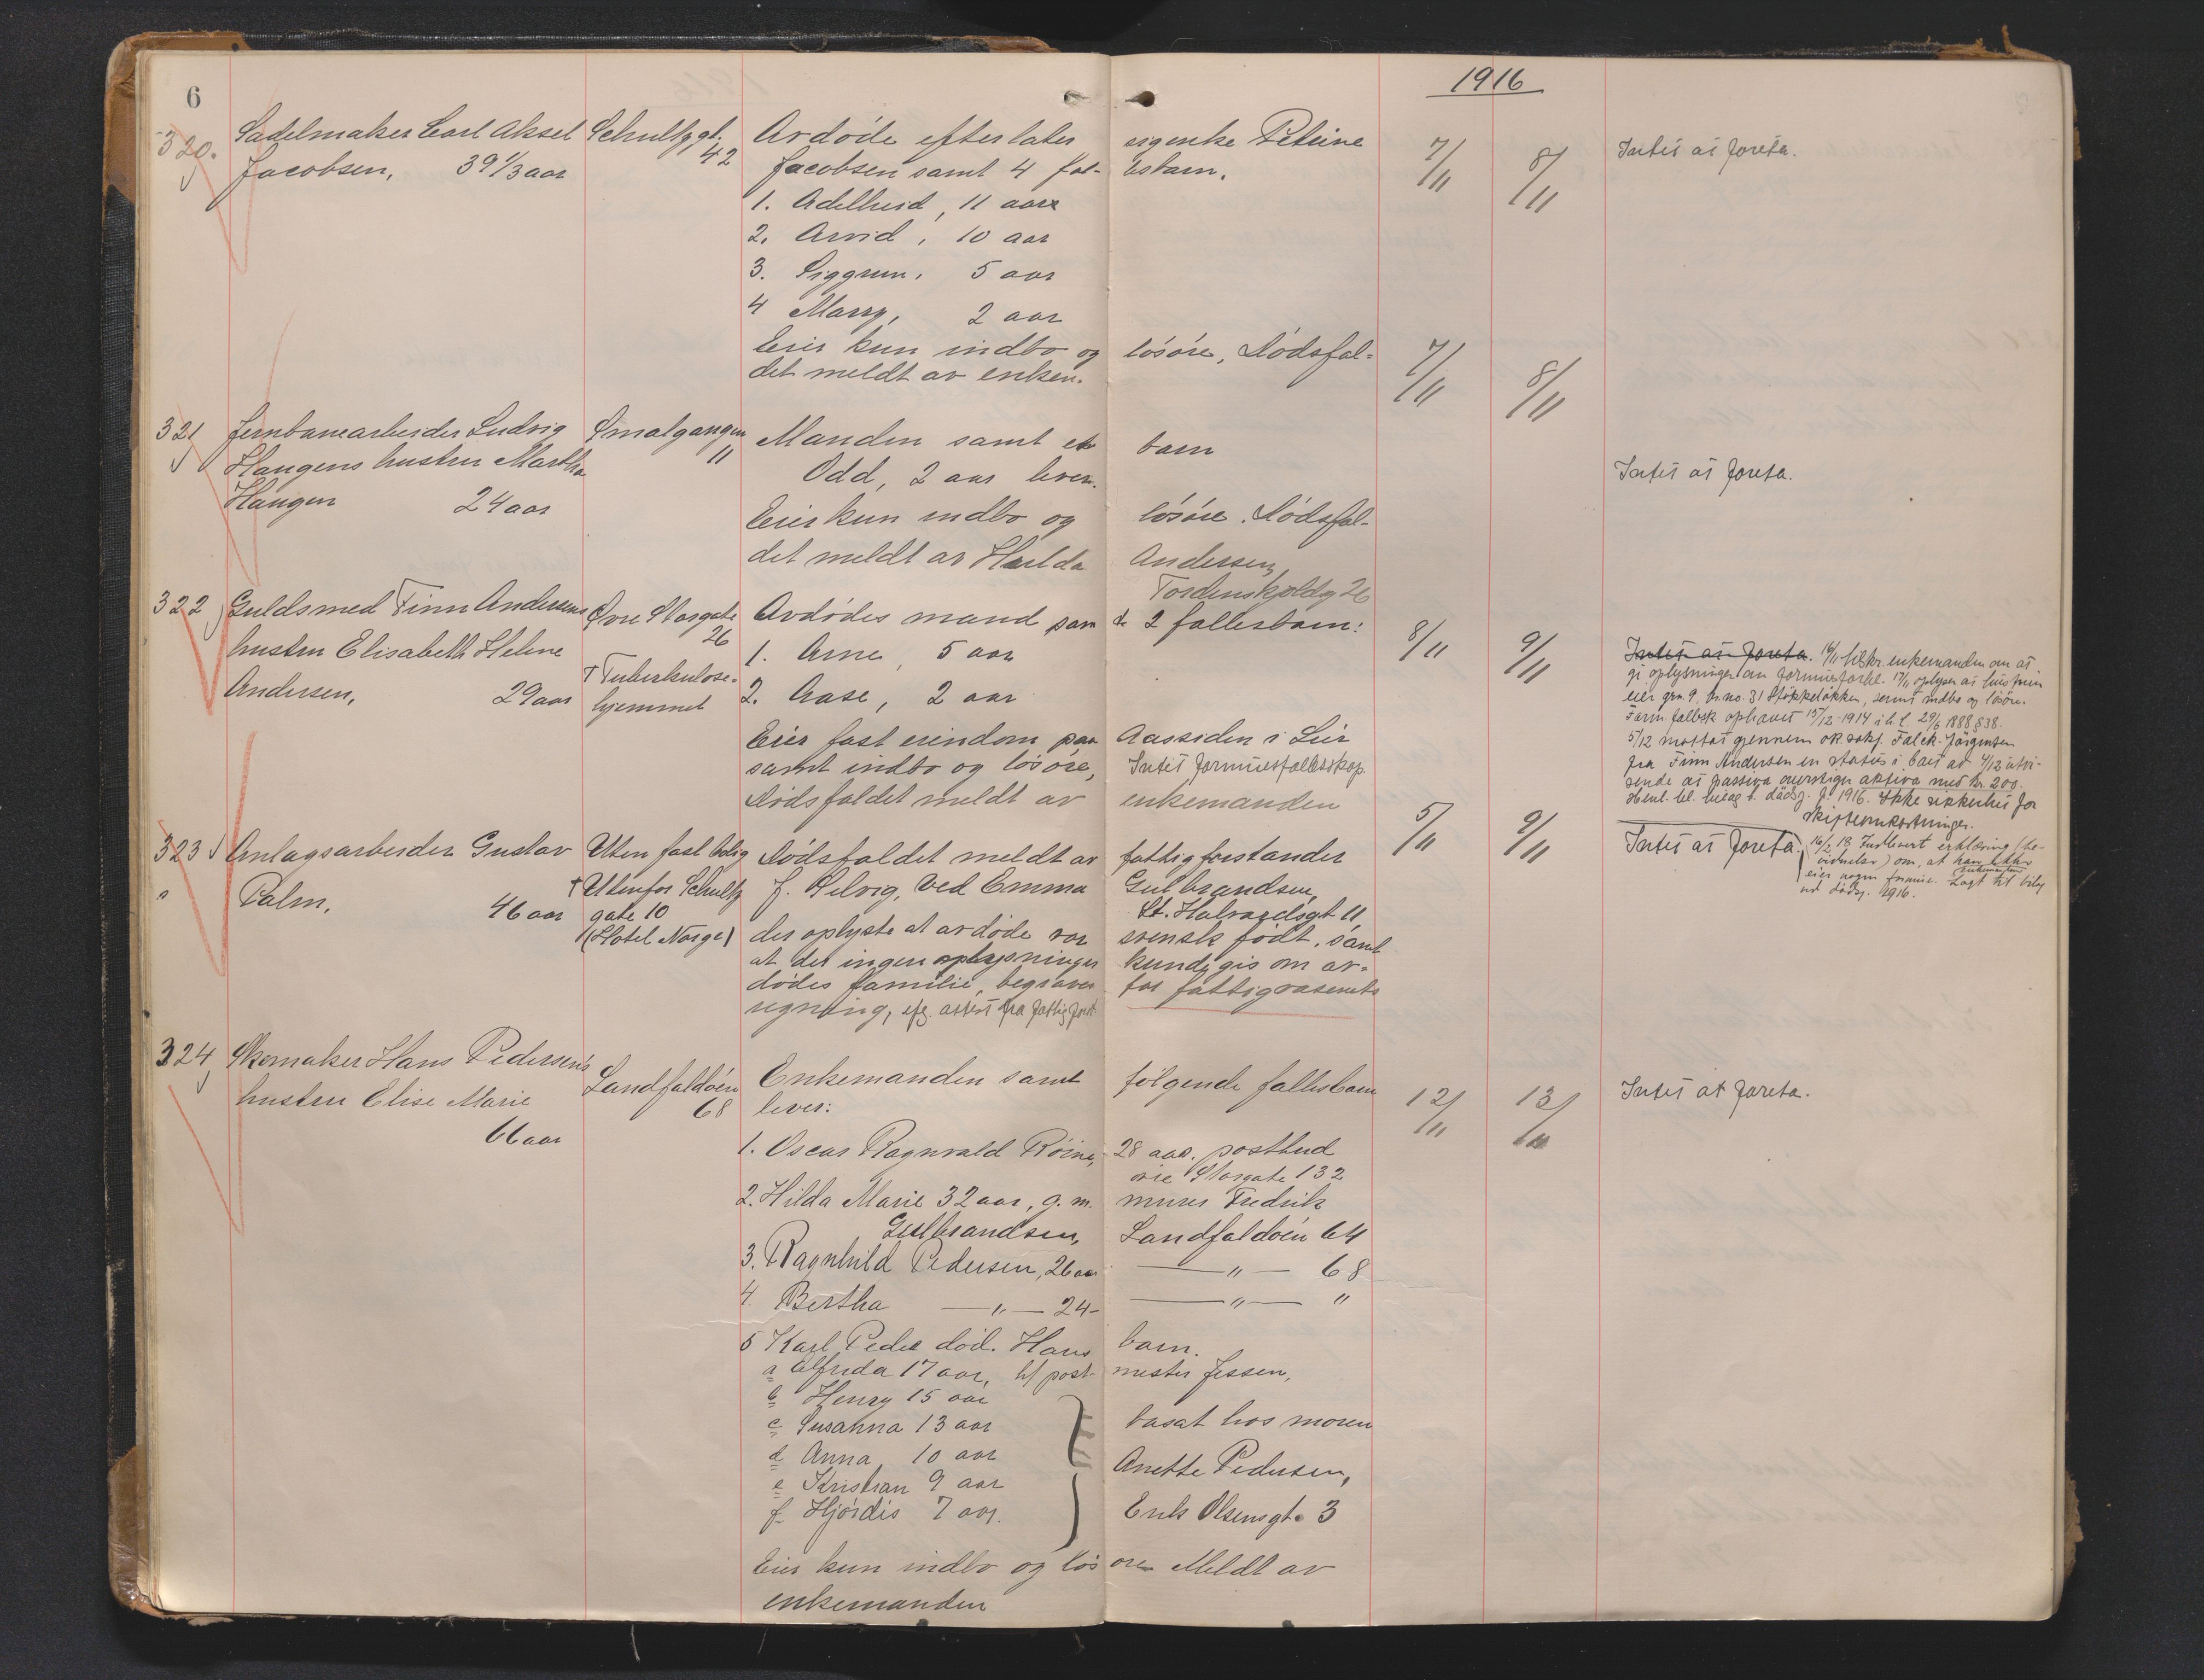 6
1916
320.
Sadelmaker Carl Aksel
Jacobsen, 39 1/3 aar
Schultzgt.
42
Avdøde efterlater sig enke Petrine
Jacobsen samt 4 fællesbarn.
1. Adelheid, 11 aar
2. Arvid, 10 aar
3. Siggrun, 5 aar
4 Marry, 2 aar
Eier kun indbo og løsøre, Dødsfal-
det meldt av enken.
7/11 8/11
Intet at foreta.
7/11 8/11
321
Jernbanearbeider Ludvig
Haugens hustru Martha
Haugen 24 aar
Smalgangen
11
Manden samt et barn
Odd, 2 aar lever.
Eier kun indbo og løsøre. Dødsfal-
det meldt av Hulda Andersen,
Tordenskjoldg 26
Intet at foreta.
322
Guldsmed Finn Andersens
hustru Elisabeth Helene
Andersen, 29 aar
Øvre Storgate
26
† Tuberkulose-
hjemmet
Avdødes mand samt 2 fællesbarn:
1. Arne, 5 aar
2. Aase, 2 aar
Eier fast eiendom paa Aassiden i Lier
samt indbo og løsøre, Intet formuesfællesskap.
Dødsfaldet meldt av enkemanden
8/11 9/11
Intet at foreta. 16/11 tilskr. enkemanden om at
gi oplysninger om formuesforhl. 17/11 oplyser at hustruen
eier grn. 9, br.no. 31 Støkkeløkken, samt indbo og løsøre.
Form.fællsk ophævet 15/12-1914 i h.t. 29/6 1888 § 38.
5/12 mottat gjennem o.r.sakf. Falck-Jørgensen
fra Finn Andersen en status i boet av 4/12 utvi-
sende at passiva overstiger aktiva med kr. 200.
Henl. bl. bilag t. dødsj. f. 1916. Ikke sikkerhet for
skifteomkostninger.
323
Anlagsarbeider Gustav
Palm, 46 aar
Uten fast bolig
† Utenfor Schultz
gate 10
(Hotel Norge)
Dødsfaldet meldt av fattigforstander
J. Selvig, ved Emma Gulbrandsen,
St. Halvardsgt 11,
der oplyste at avdøde var svensk født, samt
at der ingen oplysninger kunde gis om av-
dødes familie, begraves for fattigvæsenets
regning, efg. attest fra fattigforst.
5/11 9/11
Intet at foreta. 16/2 18 Indlevert erklæring (be-
vidnelse) om, at han ikke
enkemanden
eier nogen formue. Lagt til bilag
ved dødsj. 1916.
324
Skomaker Hans Pedersens
hustru Elise Marie
66 aar
Landfaldøen
68
Enkemanden samt følgende fællesbarn
lever:
1. Oscar Ragnvald Röine, 28 aar. postbud
øvre Storgate 132
2. Hilda Marie 32 aar, g. m. murer Fredrik
Gulbrandsen, Landfaldøen 64
3. Ragnhild Pedersen, 26 aar —"— 68
4. Bertha —"— 24- —"— "
5 Karl Peder død. Hans barn.
a Alfrida 17 aar, h/ postmester Jessen,
b Henry 15 aar
c Susanna 13 aar bosat hos moren
d Anna 10 aar Anette Pedersen,
e Kristian 9 aar
f Hjørdis 7 aar. Erik Olsensgt. 3
Eier kun indbo og løsøre Meldt av
enkemanden
12/11 13/11
Intet at foreta.